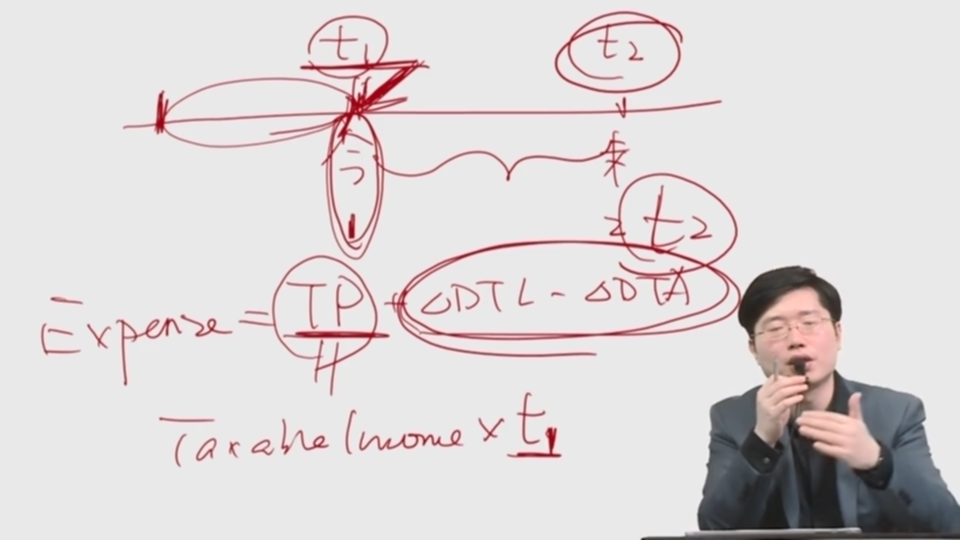 t₁ t₂
t₂
Expense = TP + △DTL - △DTA
Taxable Income × t₁